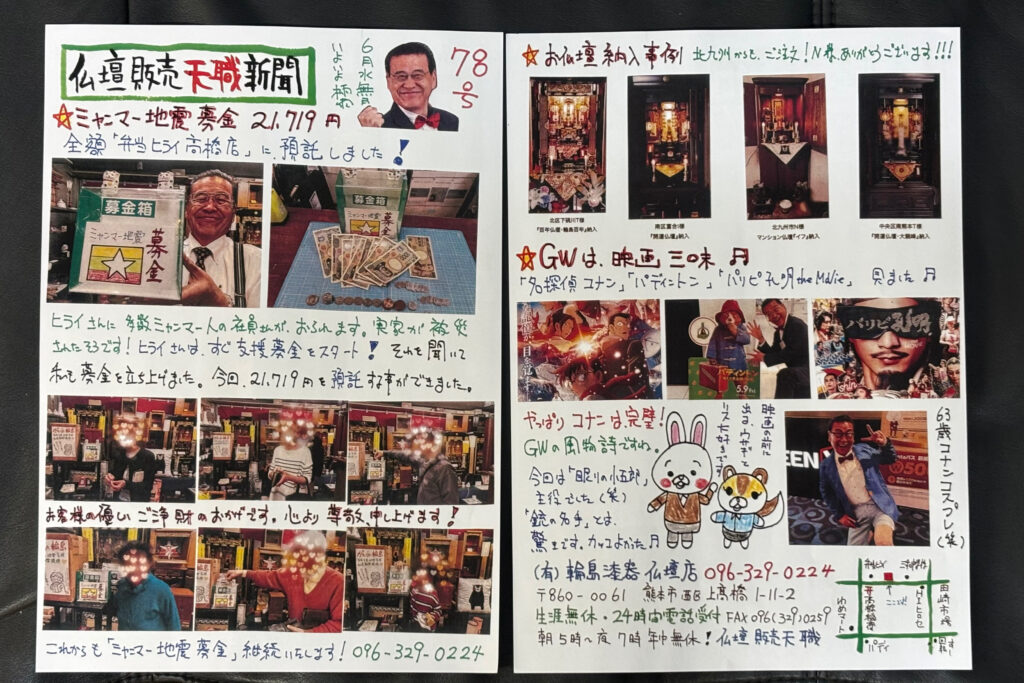 仏壇販売天職新聞
6月水無月
いよいよ
78号
☆ミャンマー地震募金 21,719円
全額「弁当ヒライ高橋店」に、預託しました!
募金箱
ミャンマー地震
募金
募金箱
ミャンマー地震
募金
ヒライさんに多数ミャンマー人の社員さんが、おられます。実家が被災
されたそうです!ヒライさんは、すぐ支援募金をスタート!それを聞いて
私も募金を立ち上げました。今回、21,719円を預託する事ができました。
お客様の優しいご浄財のおかげです。心より尊敬申し上げます!
これからも「ミャンマー地震募金」継続いたします!096-329-0224
☆お仏壇納入事例 北九州からも、ご注文!N様、ありがとうございます!!!
北区下硯川T様
『百年仏壇・輪島百年』納入
南区富合I様
『開運仏壇』納入
北九州市N様
マンション仏壇『イフ』納入
中央区南熊本T様
『開運仏壇・大観峰』納入
☆GWは、映画三昧♬
「名探偵コナン」「パディントン」「パリピ孔明 the Movie」見ました♬
パディントン
5.9
パリピ孔明
やっぱりコナンは完璧!
GWの風物詩ですね。
今回は「眠りの小五郎」
主役でした(笑)
「銃の名手」とは、
驚きです。カッコよかった♬
映画の前に
出る、ウサギと
リス大好きです
63歳コナンコスプレ(笑)
(有)輪島漆器仏壇店 096-329-0224
〒860-0061 熊本市西区上高橋1-11-2
生涯無休・24時間電話受付 FAX096(329)0259
朝5時〜夜7時年中無休!仏壇販売天職
ここです
田崎市場